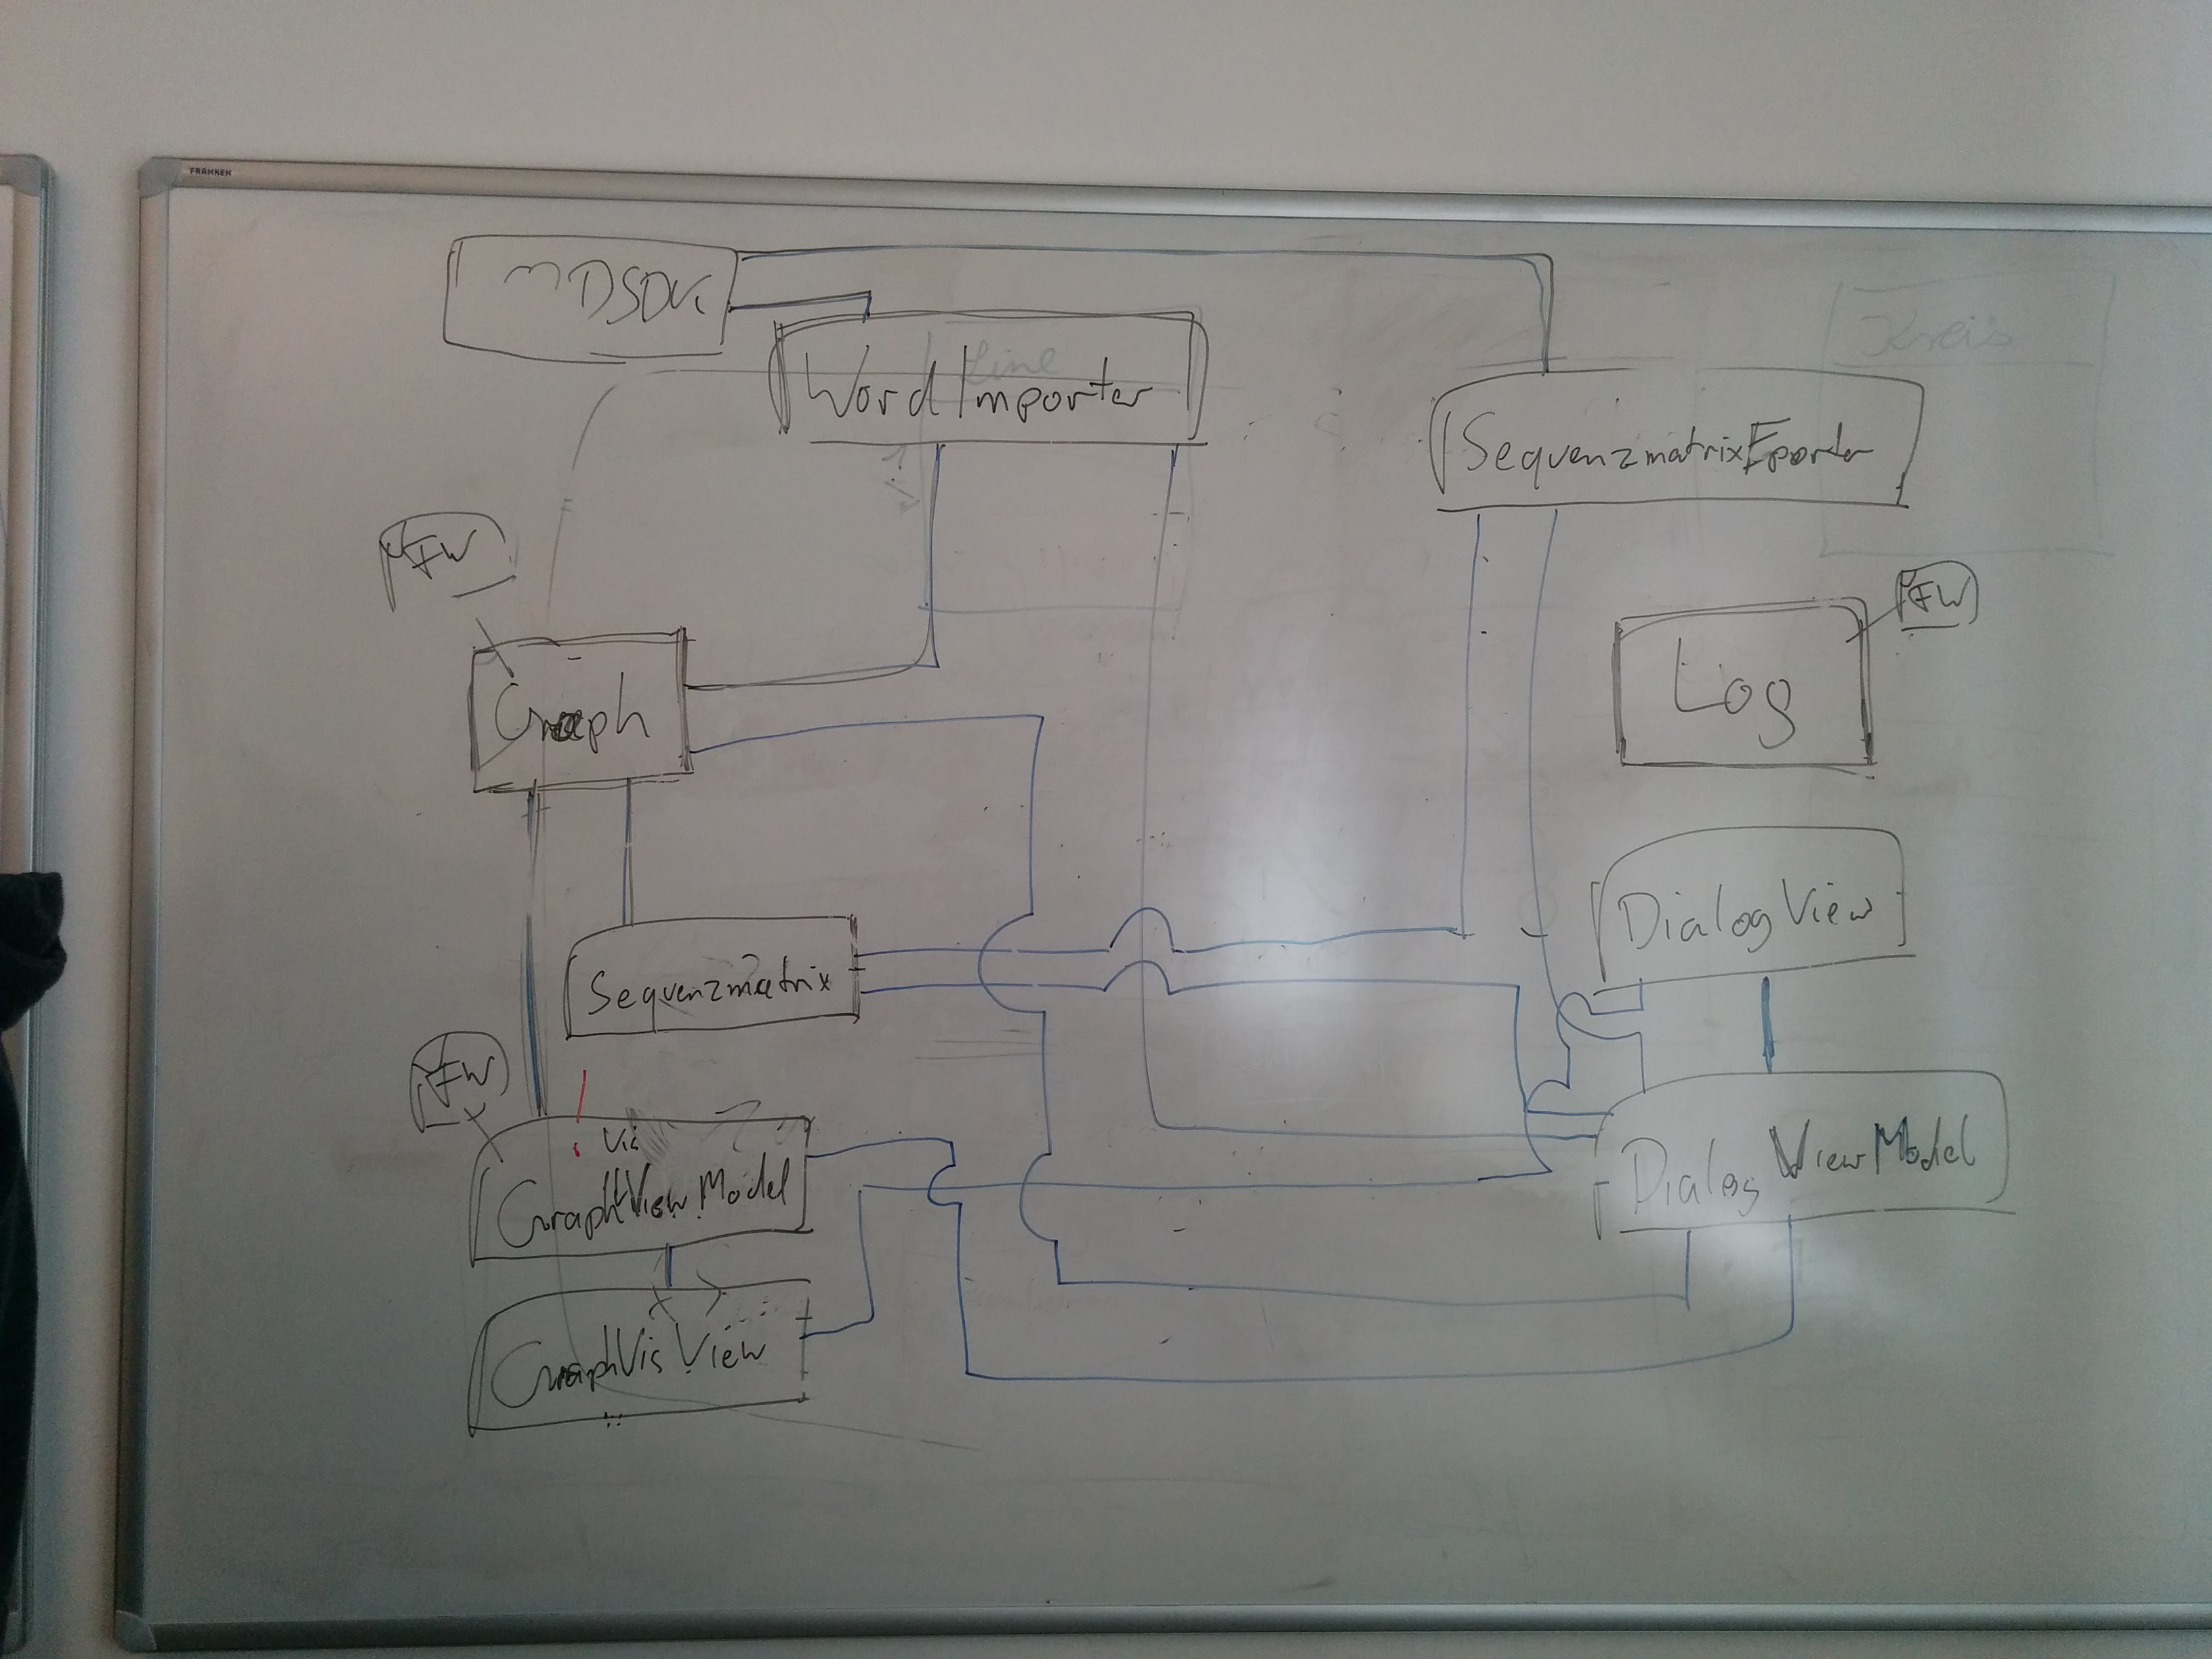 FRANKEN
Kreis
Line
WordImporter
SequenzmatrixEporter
FW
FW
Graph
Log
DialogView
Sequenzmatrix
FW
Vis
GraphViewModel
Dialog ViewModel
GraphVis View